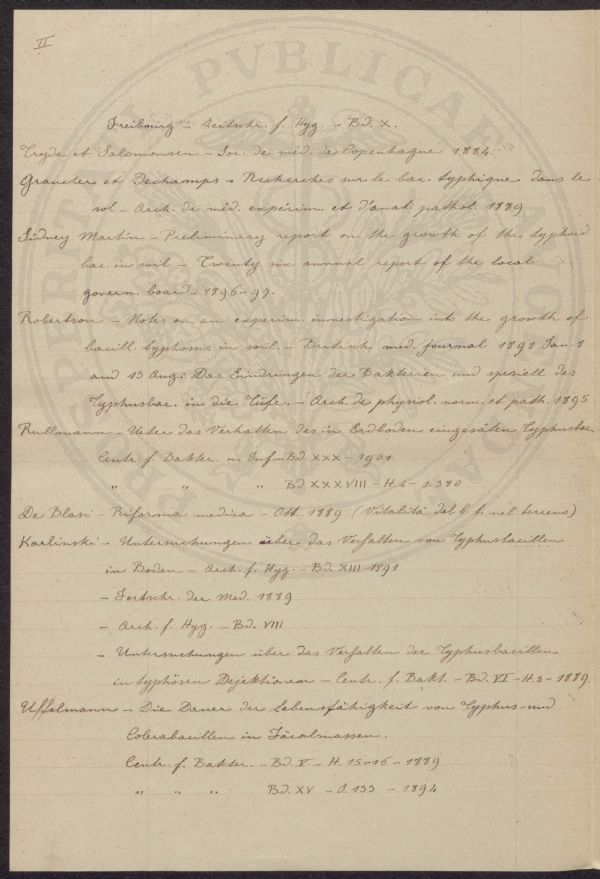 II
Freibourg - Zeitschr. f. Hyg. - Bd. X.
Tryde et Salomonsen - Soc. de méd. de Copenhague 1884
Grancher et Dechamps - Recherches sur le bac. typhique dans le
sol - Arch. de méd. experim. et d'anat. pathol. 1889
Sidney Martin - Preliminary report on the growth of the typhoid
bac. in soil - Twenty six annual report of the local
govern. board - 1896-97.
Robertson - Notes on an experim. investigation into the growth of
bacill. typhosus in soil. - Britisch med. journal 1898 Jan. 8
and 13 Aug.: Das Eindringen der Bakterien und speziell des
Typhusbac. in die Tiefe. - Arch. de physiol. norm. et path. 1895
Rullmann - Ueber das Verhalten des in Erdboden eingesäten Typhusbac.
Centr. f. Bakter. u. Inf. - Bd. XXX - 1901
" " " Bd XXXVIII - H. 4 - S. 380
De Blasi - Riforma medica - Ott. 1889 (Vitalità del b. t. nel terreno)
Karlinski - Untersuchungen über das Verhalten von Typhusbacillen
in Boden - Arch. f. Hyg. - Bd. XIII - 1891
- Fortschr. der Med. 1889
- Arch. f. Hyg. - Bd. VIII
- Untersuchungen über das Verhalten der Typhusbacillen
in typhösen Dejektionen - Centr. f. Bakt. - Bd. VI - H. 3 - 1889.
Uffelmann - Die Dauer der Lebensfähigkeit von Typhus- und
Colerabacillen in Fäcalmassen.
Centr. f. Bakter. - Bd. V - H. 15-16 - 1889
" " " Bd. XV - S. 133 - 1894